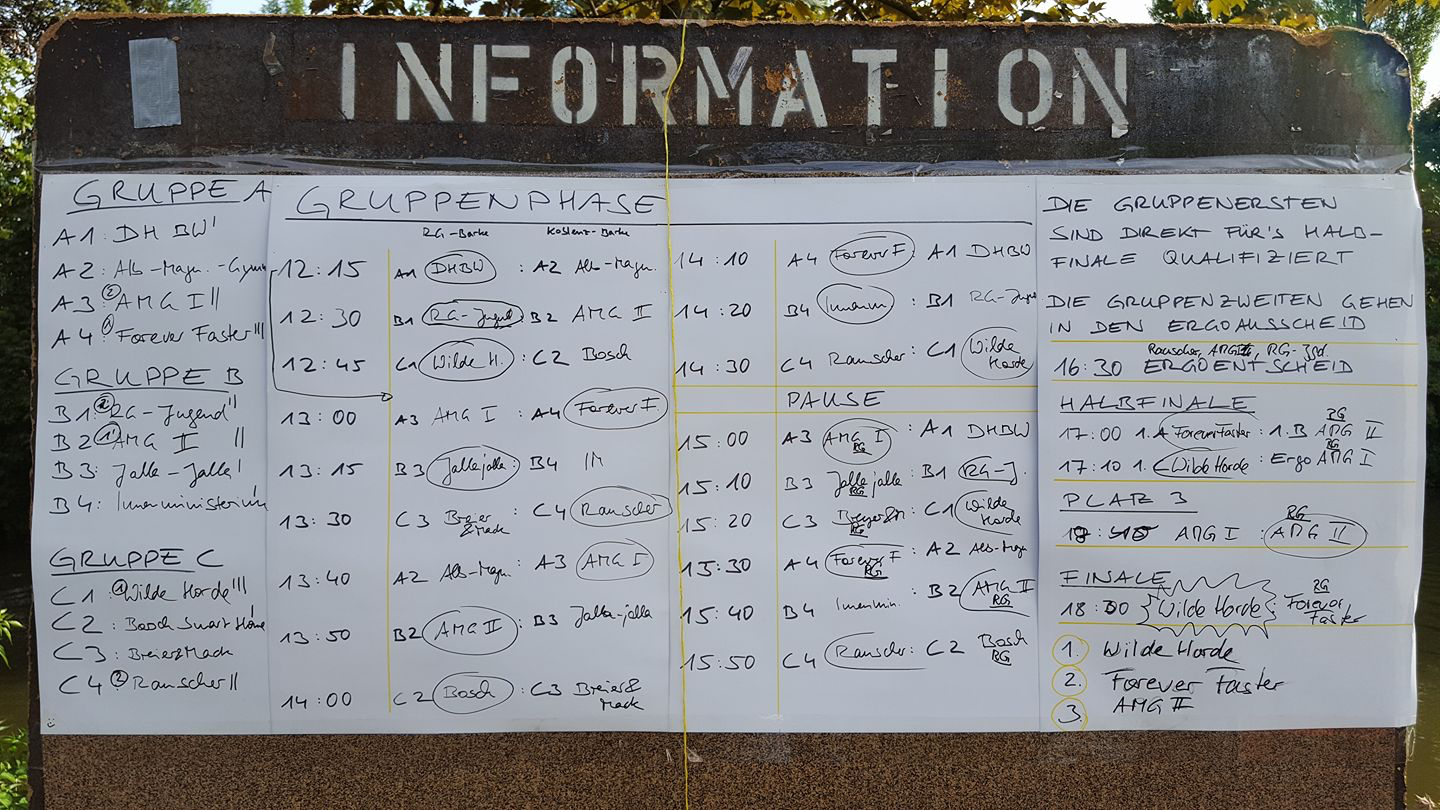 INFORMATION
GRUPPE A
A1: DHBW I
A2: Alb-Magn.-Gymn
A3 ② AMG I II
A4 ① Forever Faster III
GRUPPE B
B1: ② RG-Jugend II
B2 ① AMG II II
B3: Jalla-Jalla I
B4: Innenministerium
GRUPPE C
C1 ① Wilde Horde III
C2: Bosch Smart Home
C3: Breier&Mack
C4 ② Rauscher II
GRUPPENPHASE
RG-Barke Koblenz-Barke
12:15 A1 DHBW : A2 Alb-Magn.
12:30 B1 RG-Jugend : B2 AMG II
12:45 C1 Wilde H. : C2 Bosch
13:00 A3 AMG I : A4 Forever F.
13:15 B3 Jalla jalla : B4 IM
13:30 C3 Breier &Mack : C4 Rauscher
13:40 A2 Alb-Magn. : A3 AMG I
13:50 B2 AMG II : B3 Jalla-jalla
14:00 C2 Bosch : C3 Breier& Mack
14:10 A4 Forever F : A1 DHBW
14:20 B4 Innenmin : B1 RG-Jugend
14:30 C4 Rauscher : C1 Wilde Horde
PAUSE
15:00 A3 AMG I RG : A1 DHBW
15:10 B3 Jalla jalla RG : B1 RG-J.
15:20 C3 Breier&M RG : C1 Wilde Horde
15:30 A4 Forever F RG : A2 Alb-Magn
15:40 B4 Innenmin. : B2 AMG II RG
15:50 C4 Rauscher : C2 Bosch RG
DIE GRUPPENERSTEN
SIND DIREKT FÜR'S HALB-
FINALE QUALIFIZIERT
DIE GRUPPENZWEITEN GEHEN
IN DEN ERGOAUSSCHEID
Rauscher, AMG I, RG-Jgd.
16:30 ERGOENTSCHEID
HALBFINALE
RG
17:00 1.A Forever Faster : 1.B AMG II
RG
17:10 1.C Wilde Horde : Ergo AMG I
PLATZ 3
RG
AMG I : AMG II
FINALE
RG
18:00 Wilde Horde : Forever Faster
1. Wilde Horde
2. Forever Faster
3. AMG II